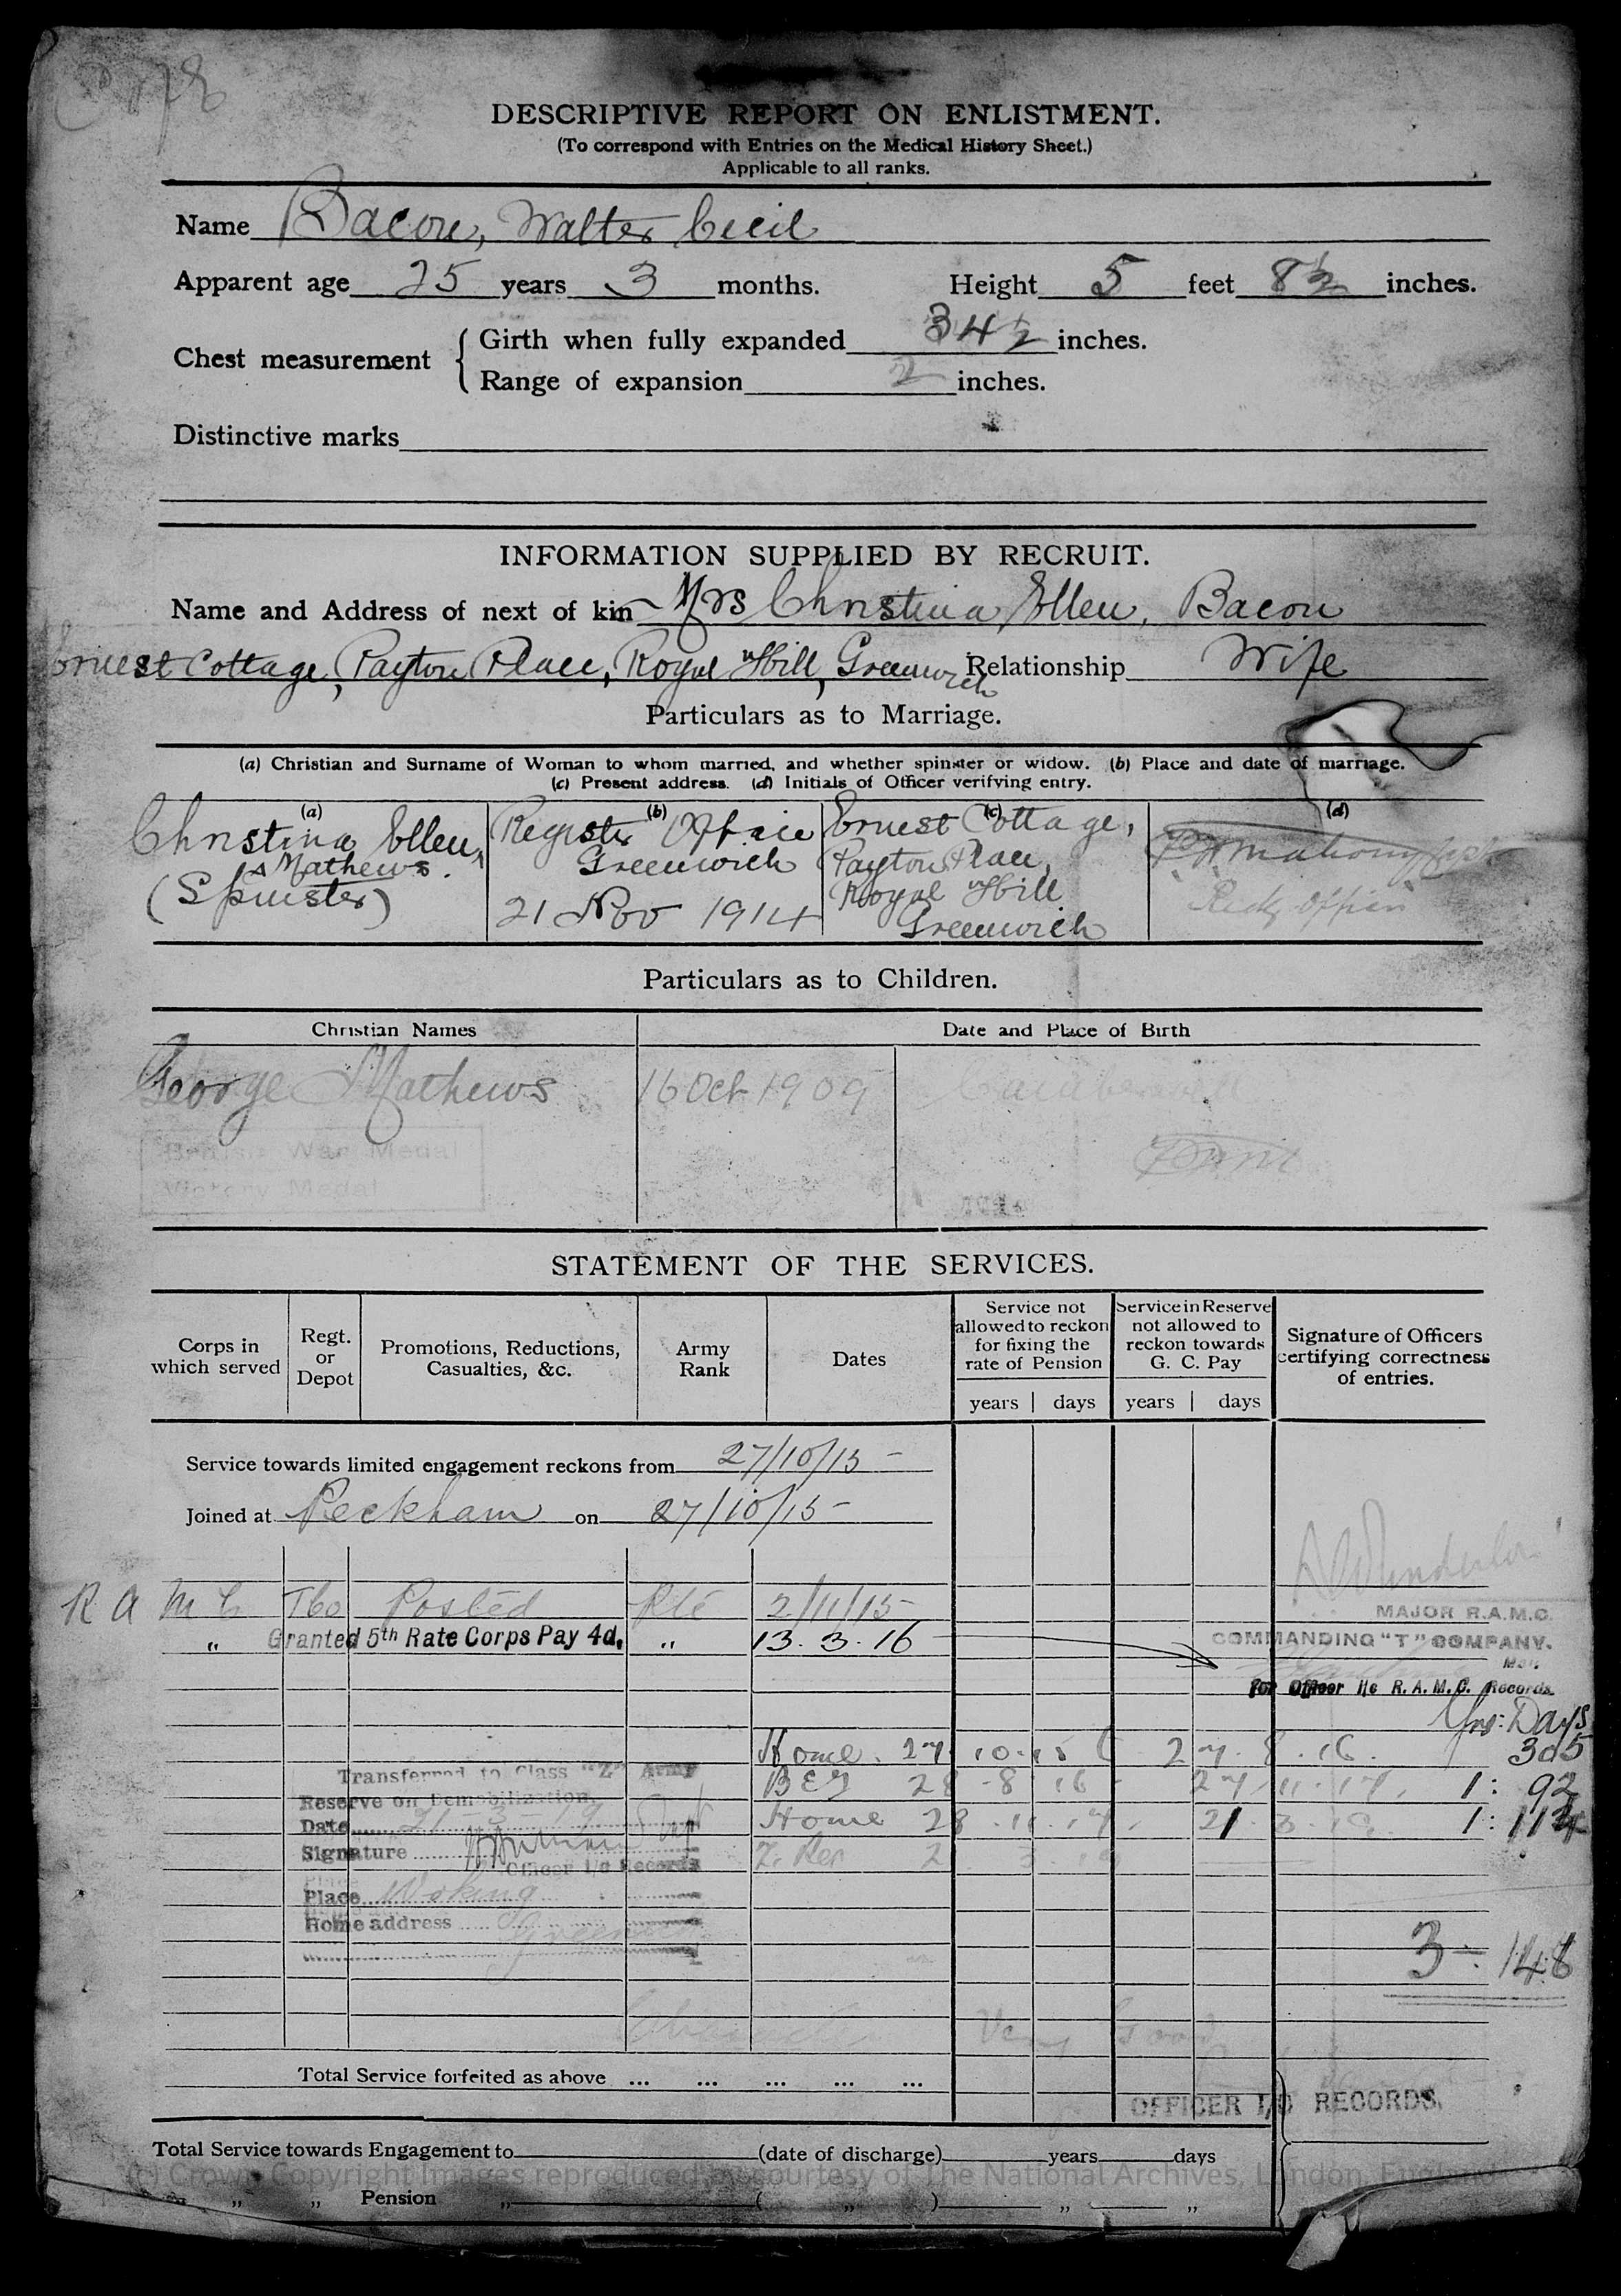 DESCRIPTIVE REPORT ON ENLISTMENT.
(To correspond with Entries on the Medical History Sheet.)
Applicable to all ranks.
Name Bacon, Walter Cecil
Apparent age 25 years 3 months. Height 5 feet 8½ inches.
Chest measurement { Girth when fully expanded 34½ inches.
Range of expansion 2 inches.
Distinctive marks
INFORMATION SUPPLIED BY RECRUIT.
Name and Address of next of kin Mrs Christina Ellen, Bacon
Ernest Cottage, Payton Place, Royal Hill, Greenwich Relationship Wife
Particulars as to Marriage.
(a) Christian and Surname of Woman to whom married, and whether spinster or widow. (b) Place and date of marriage.
(c) Present address. (d) Initials of Officer verifying entry.
(a) (b) (c) (d)
Christina Ellen, Register Office Ernest Cottage,
Mathews. Greenwich Payton Place,
(Spinster) Royal Hill
21 Nov 1914 Greenwich
Particulars as to Children.
Christian Names Date and Place of Birth
George Mathews 16 Oct 1909 Camberwell
British War Medal
Victory Medal
STATEMENT OF THE SERVICES.
Corps in which served Regt. or Depot Promotions, Reductions, Casualties, &c. Army Rank Dates Service not allowed to reckon for fixing the rate of Pension Service in Reserve not allowed to reckon towards G. C. Pay Signature of Officers certifying correctness of entries.
years days years days
Service towards limited engagement reckons from 27/10/15
Joined at Peckham on 27/10/15
R A M C Posted Pte 2/11/15
MAJOR R.A.M.C.
" Granted 5th Rate Corps Pay 4d. " 13.3.16 COMMANDING "T" COMPANY.
For Officer i/c R.A.M.C. Records.
Yrs: Days
Home. 27 10.15 27.8.16. 305
Transferred to Class "Z" Army
B E F 28-8-16 27.11.17. 1: 92
Reserve on Demobilization.
Date
Home 28.11.17. 21.3.19. 1: 114
Signature
Officer i/c Records
Place Woking
Home address
3 : 148
Character Very Good
Total Service forfeited as above ... ... ... ... ...
OFFICER I/C RECORDS.
Total Service towards Engagement to (date of discharge) years days
(c) Crown Copyright Images reproduced by courtesy of The National Archives, London, England
" " Pension " ( " ) " "